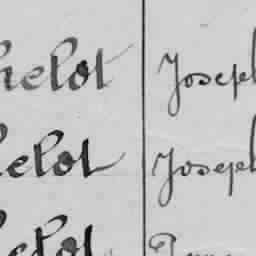 helot Joseph
helot Joseph
helot